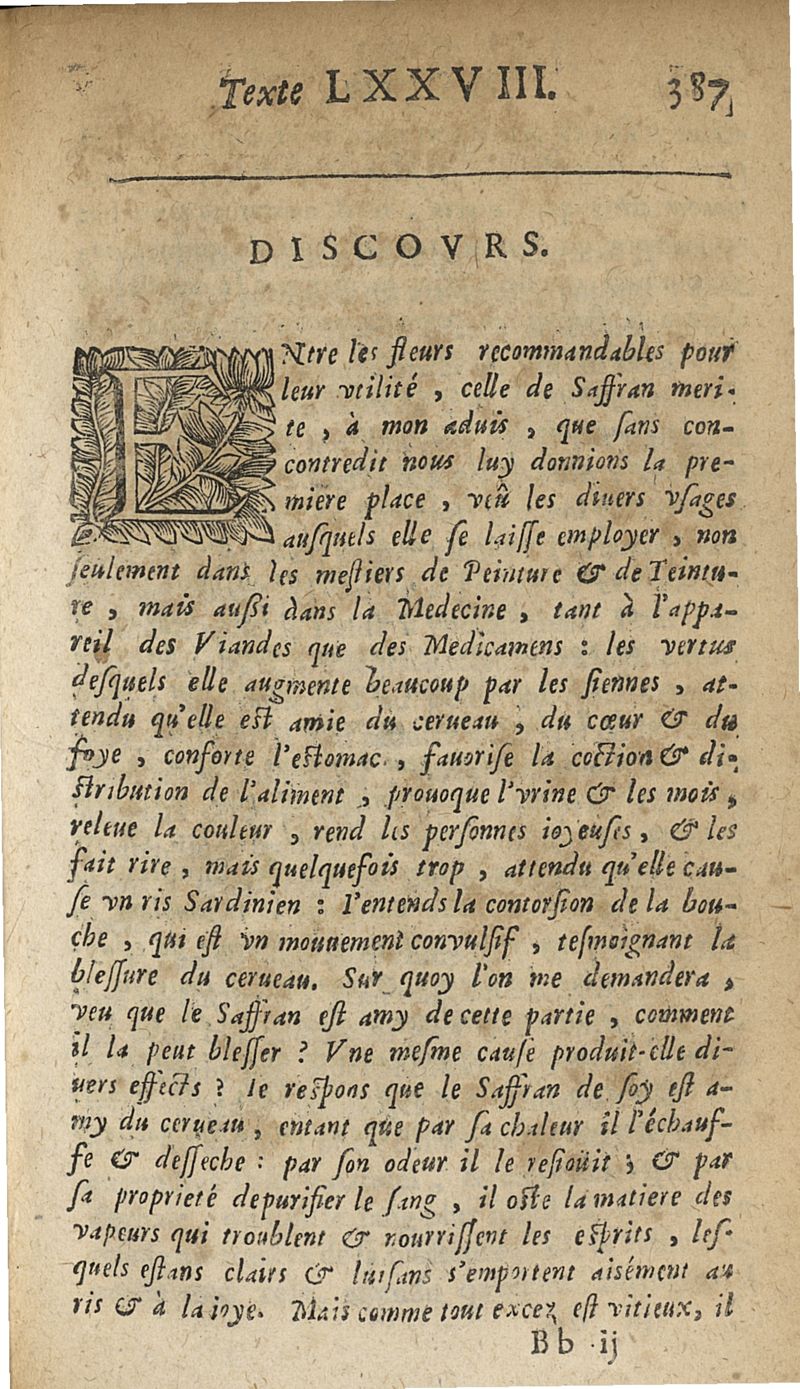 Texte LXXVIII. 387
DISCOVRS.
ENtre les fleurs recommandables pour
leur vtilité, celle de Saffran meri-
te, à mon aduis, que ſans con-
contredit nous luy donnions la pre-
miere place, veû les diuers vſages
auſquels elle ſe laiſſe employer, non
ſeulement dans les meſtiers de Peinture & de Teintu-
re, mais außi dans la Medecine, tant à l'appa-
reil des Viandes que des Medicamens : les vertus
deſquels elle augmente beaucoup par les ſiennes, at-
tendu qu'elle est amie du cerueau, du cœur & du
foye, conforte l'estomac, fauoriſe la coction & di-
stribution de l'aliment, prouoque l'vrine & les mois,
releue la couleur, rend les perſonnes ioyeuſes, & les
fait rire, mais quelquefois trop, attendu qu'elle cau-
ſe vn ris Sardinien : I'entends la contorſion de la bou-
che, qui eſt vn mouuement convulſif, teſmoignant la
bleſſure du cerueau. Sur quoy l'on me demandera,
veu que le Saffran eſt amy de cette partie, comment
il la peut bleſſer ? Vne meſme cauſe produit-elle di-
uers effects ? Ie reſpons que le Saffran de ſoy eſt a-
my du cerueau, entant que par ſa chaleur il l'échauf-
fe & deſſeche : par ſon odeur il le reſioüit ; & par
ſa proprieté depurifier le ſang, il oſte la matiere des
vapeurs qui troublent & nourriſſent les eſprits, leſ-
quels eſtans clairs & luiſans s'emportent aisément au
ris & à la ioye. Mais comme tout excez eſt vitieux, il
Bb ij